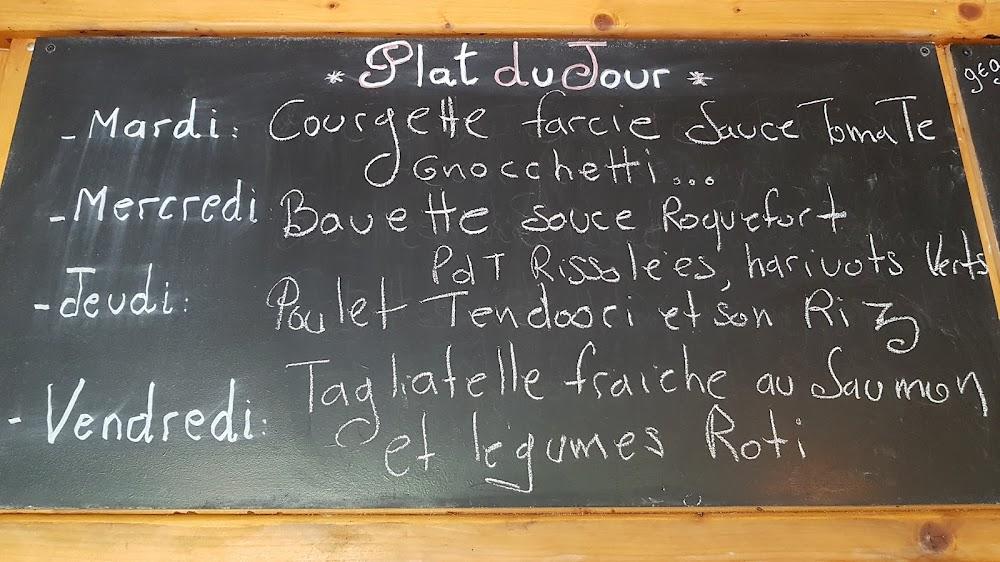 * Plat du Jour *
- Mardi: Courgette farcie Sauce TomaTe
Gnocchetti...
- Mercredi: Bavette sauce Roquefort
PdT Rissolées, harivots Verts
- Jeudi: Poulet Tendoori et son Riz
- Vendredi: Tagliatelle fraiche au Saumon
et légumes Roti